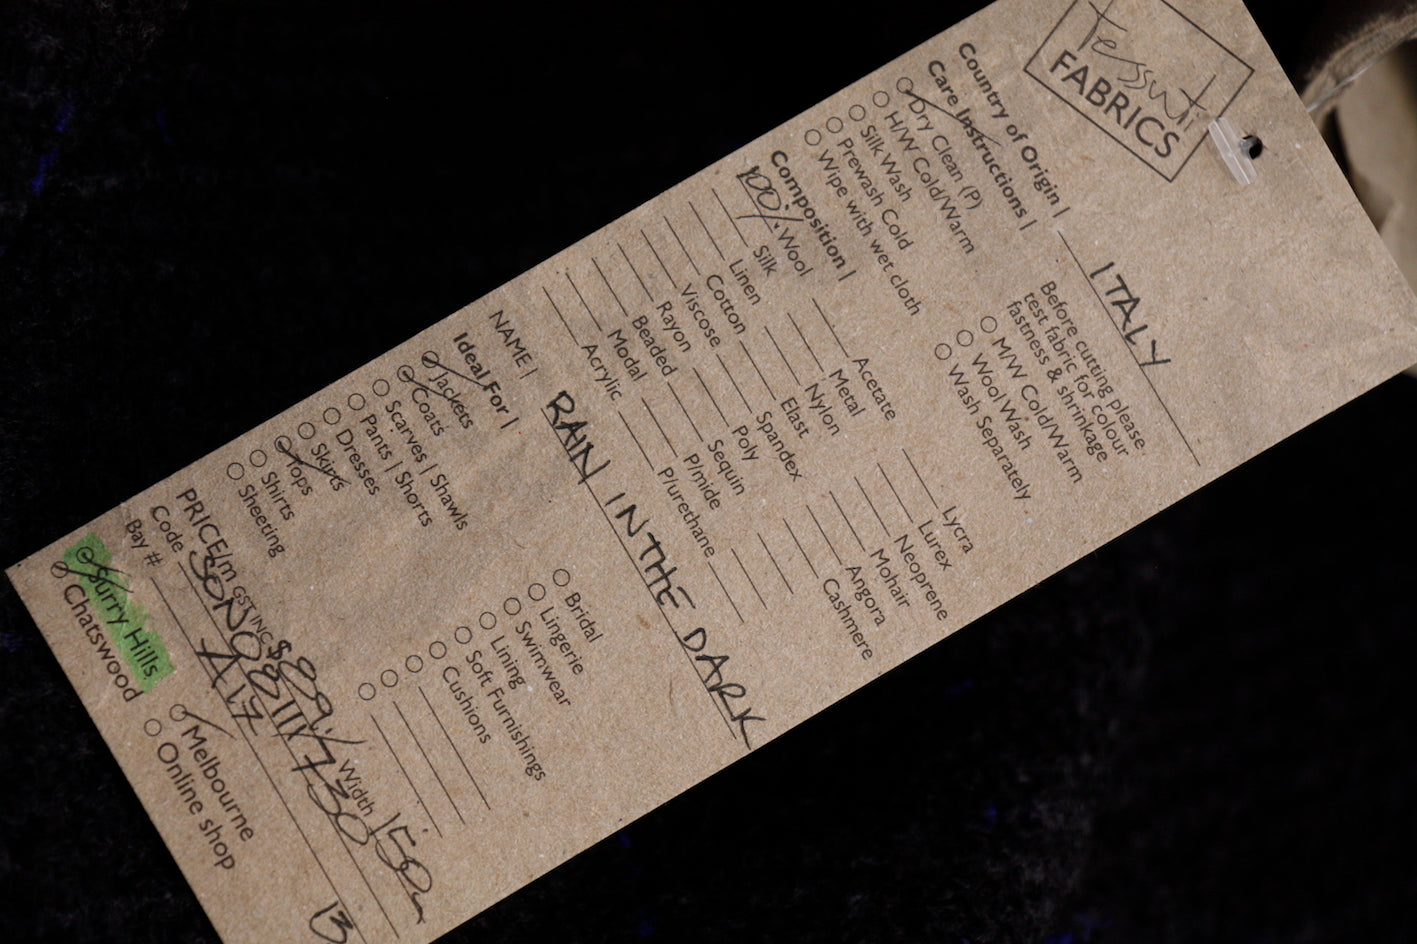 Tessuti
FABRICS
Country of Origin | ITALY
Care Instructions |
Before cutting please
test fabric for colour
fastness & shrinkage
Dry Clean (P)
H/W Cold/Warm
Silk Wash
Prewash Cold
Wipe with wet cloth
M/W Cold/Warm
Wool Wash
Wash Separately
Composition |
100% Wool
Silk
Linen
Cotton
Viscose
Rayon
Beaded
Modal
Acrylic
Acetate
Metal
Nylon
Elast
Spandex
Poly
Sequin
P/mide
P/urethane
Lycra
Lurex
Neoprene
Mohair
Angora
Cashmere
NAME | RAIN IN THE DARK
Ideal For |
Jackets
Coats
Scarves | Shawls
Pants | Shorts
Dresses
Skirts
Tops
Shirts
Sheeting
Bridal
Lingerie
Swimwear
Lining
Soft Furnishings
Cushions
PRICE/m GST INC $89 Width 150
Code
Bay # A17 13
Surry Hills
Chatswood
Melbourne
Online shop